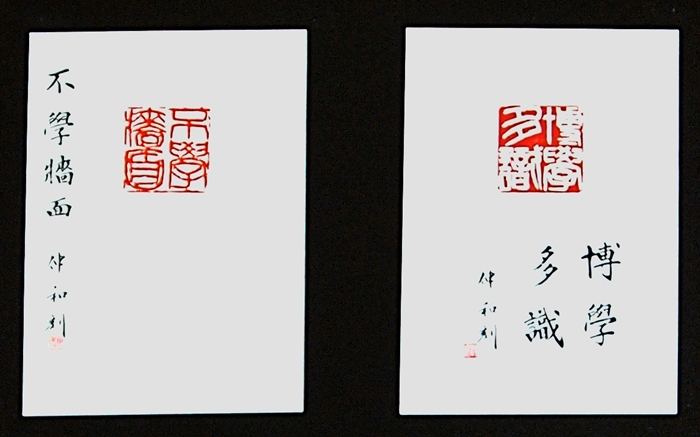 不學牆面
仲和刻
不學牆面
博學多識
博學
多識
仲和刻